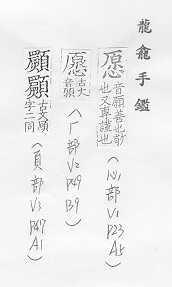 龍龕手鑑
愿
音願善也敬
也又專謹也
(心部V1 P23 A5)
古文
音願
(厂部 V2 P49 B9)
古文願
字二同
(頁部 V3 P47 A1)